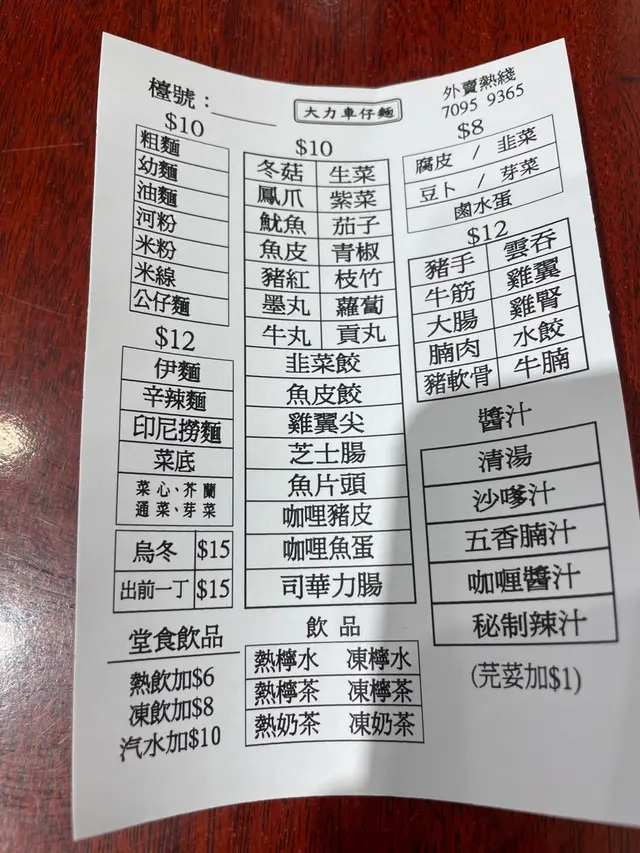 檯號：
大力車仔麵
外賣熱綫
7095 9365
$10
粗麵
幼麵
油麵
河粉
米粉
米線
公仔麵
$12
伊麵
辛辣麵
印尼撈麵
菜底
菜心、芥蘭
通菜、芽菜
烏冬 $15
出前一丁 $15
堂食飲品
熱飲加$6
凍飲加$8
汽水加$10
$10
冬菇 生菜
鳳爪 紫菜
魷魚 茄子
魚皮 青椒
豬紅 枝竹
墨丸 蘿蔔
牛丸 貢丸
韭菜餃
魚皮餃
雞翼尖
芝士腸
魚片頭
咖哩豬皮
咖哩魚蛋
司華力腸
飲品
熱檸水 凍檸水
熱檸茶 凍檸茶
熱奶茶 凍奶茶
$8
腐皮 / 韭菜
豆卜 / 芽菜
鹵水蛋
$12
豬手 雲吞
牛筋 雞翼
大腸 雞腎
腩肉 水餃
豬軟骨 牛腩
醬汁
清湯
沙嗲汁
五香腩汁
咖喱醬汁
秘制辣汁
(芫荽加$1)